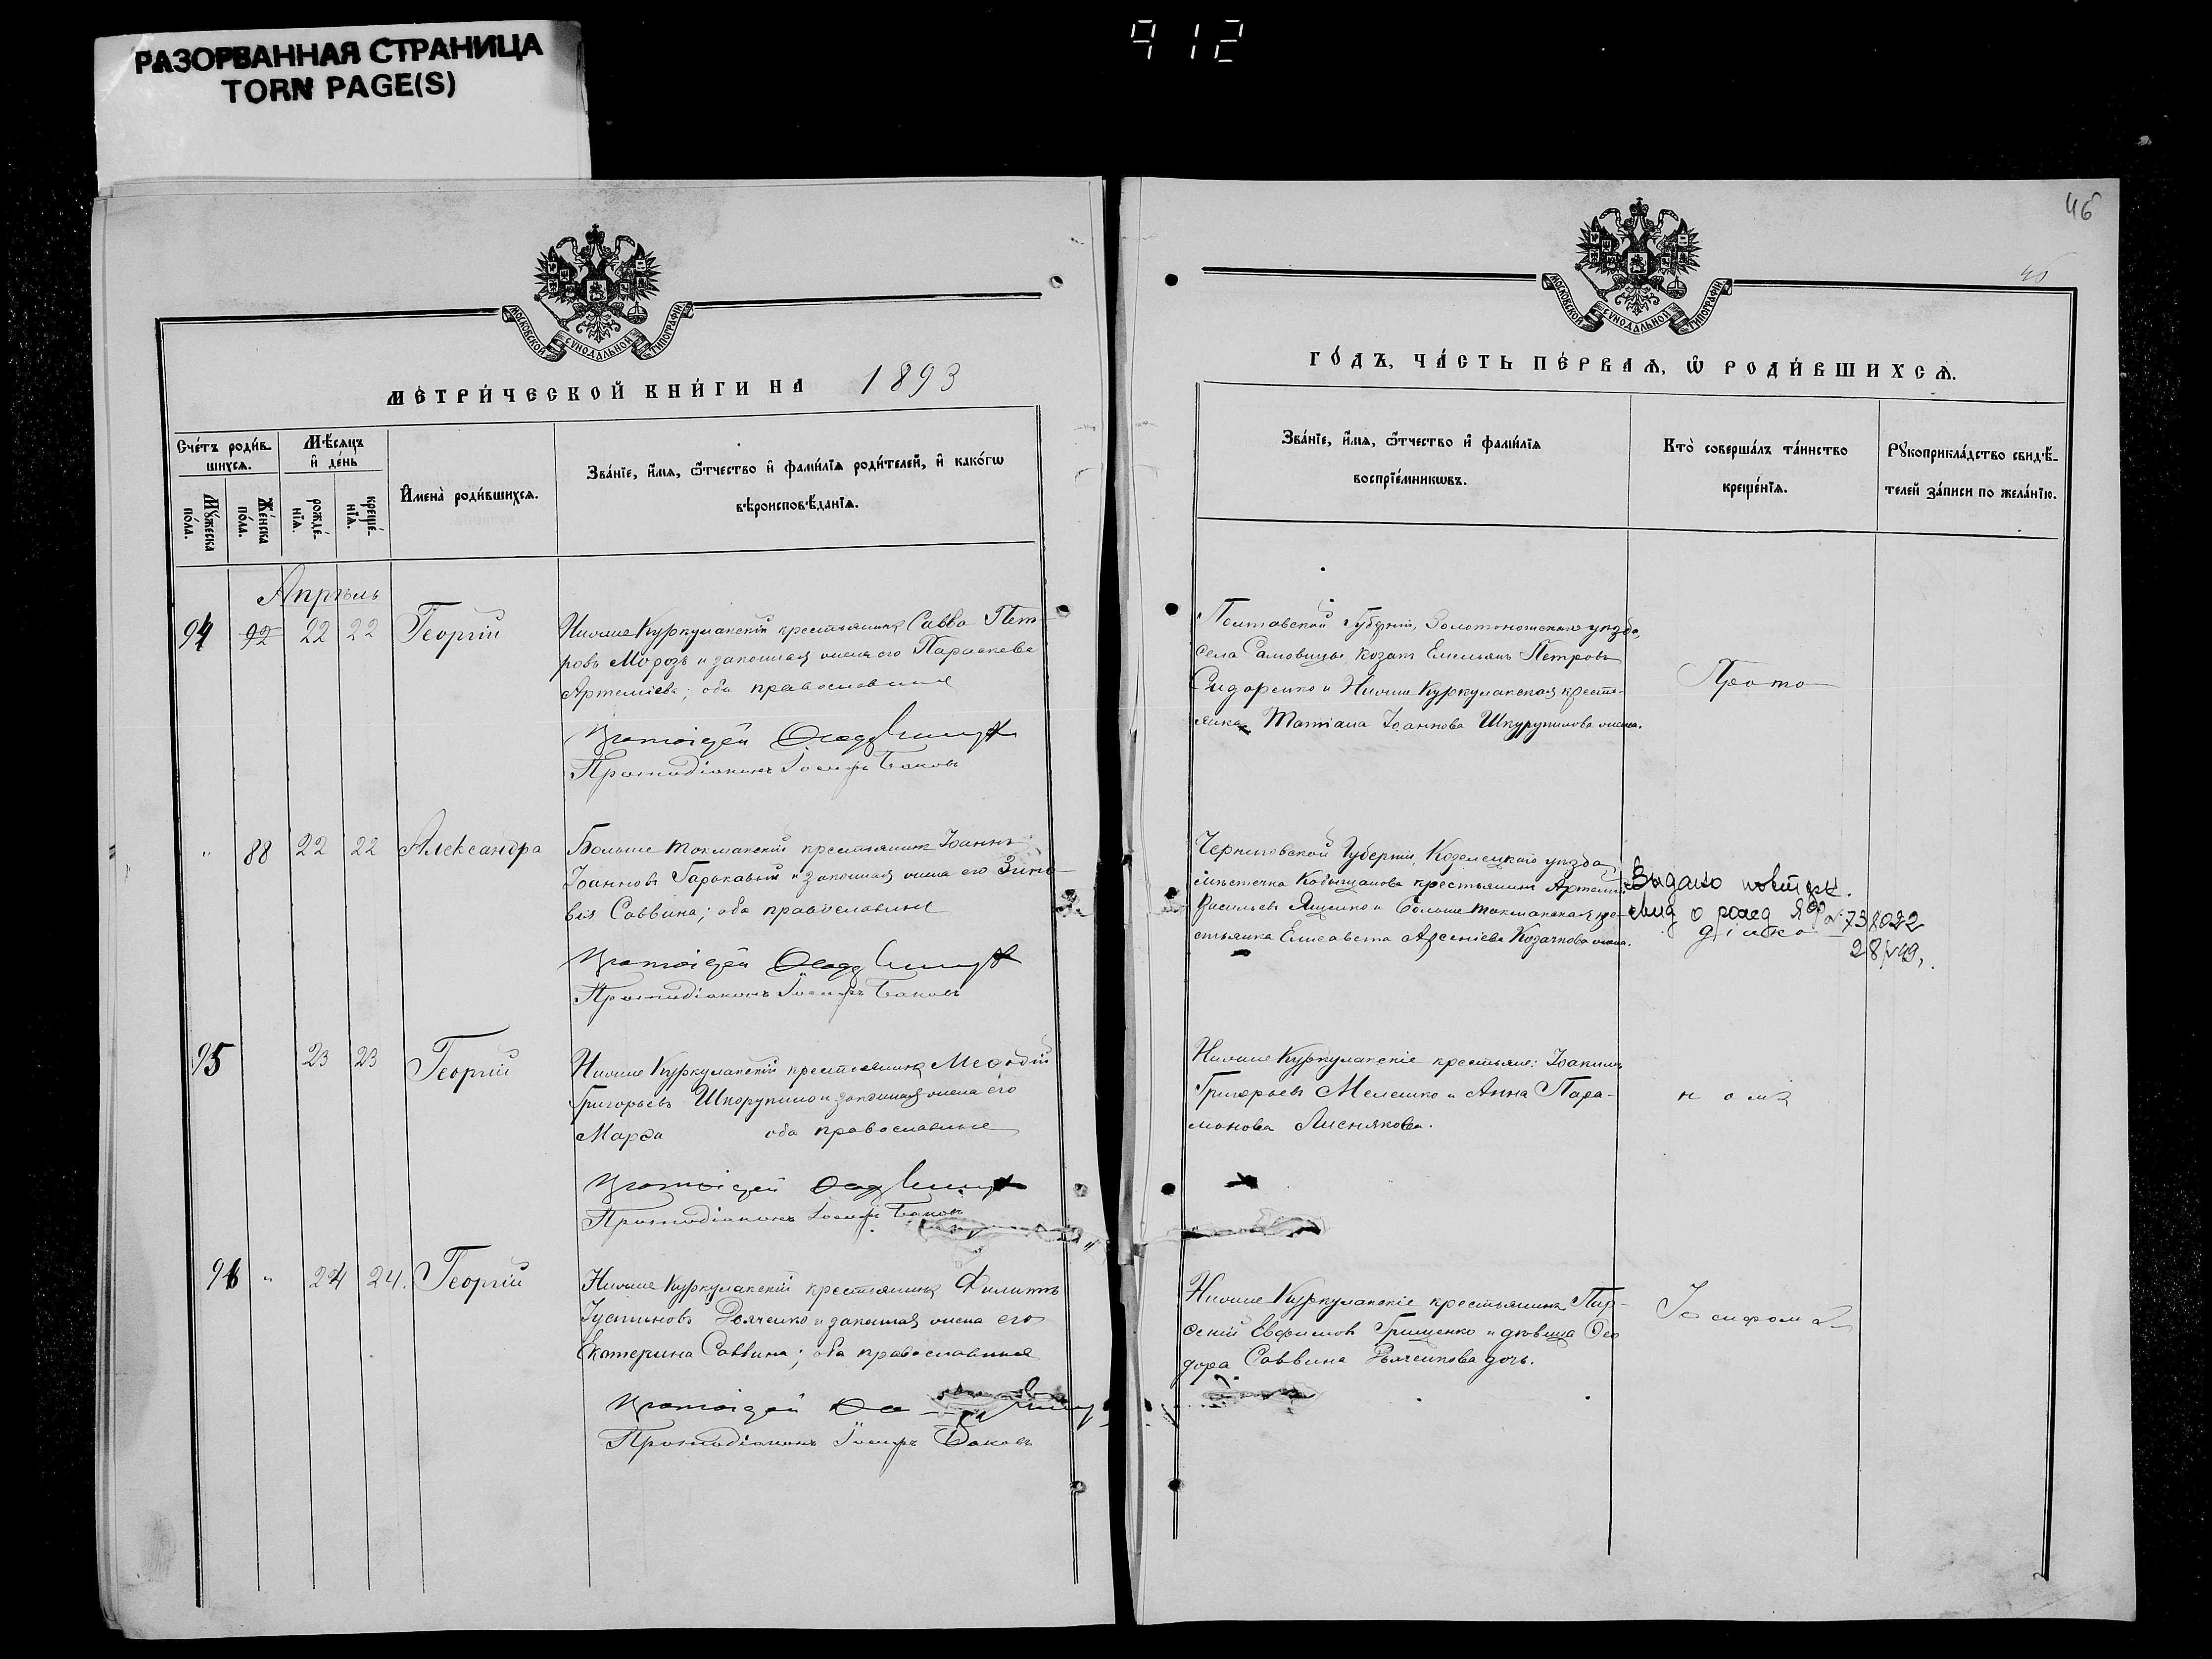 РАЗОРВАННАЯ СТРАНИЦА
TORN PAGE(S)
912
МОСКОВСКОЙ СѴНОДАЛЬНОЙ ТИПОГРАФІИ
МЕТРИ́ЧЕСКОЙ КНИ́ГИ НА 1893
Сче́тъ роди́в-
шихсѧ.
Мꙋ́жеска
по́ла.
Же́нска
по́ла.
Мѣ́сяцъ
и҆ де́нь
рожде́-
нїѧ.
креще́-
нїѧ.
И҆мена̀ роди́вшихсѧ.
Зва́нїе, и҆́мѧ, ѻ҆́тчество и҆ фами́лїѧ роди́телей, и҆ како́гѡ
вѣроисповѣ́данїѧ.
Апрѣль
94 92 22 22 Георгій
Нижне Куркулакскій крестьянинъ Савва Пет-
ровъ Морозъ и законная жена его Параскева
Артеміева; оба православные
Протоіерей
Протодіаконъ Іосифъ Баковъ
" 88 22 22 Александра
Больше Токмакскій крестьянинъ Іоаннъ
Іоанновъ Гаркавый и законная жена его Зино-
вія Саввина; оба православные
Протоіерей
Протодіаконъ Іосифъ Баковъ
95 23 23 Георгій
Нижне Куркулакскій крестьянинъ Меѳодій
Григорьевъ Шкорупило и законная жена его
Марѳа оба православные
Протоіерей
Протодіаконъ Іосифъ Баковъ
96 " 24 24. Георгій
Нижне Куркулакскій крестьянинъ Филиппъ
Іустиновъ Дьяченко и законная жена его
Екатерина Саввина; оба православные
Протоіерей
Протодіаконъ Іосифъ Баковъ
46
45
МОСКОВСКОЙ СѴНОДАЛЬНОЙ ТИПОГРАФІИ
ГО́ДЪ, ЧА́СТЬ ПЕ́РВАѦ, Ѡ҆ РОДИ́ВШИХСѦ.
Зва́нїе, и҆́мѧ, ѻ҆́тчество и҆ фами́лїѧ
воспрїе́мникѡвъ.
Кто̀ соверша́лъ та́инство
креще́нїѧ.
Рꙋкоприкла́дство свидѣ́-
телей за́писи по жела́нїю.
Полтавской Губерніи, Золотоношскаго уѣзда,
села Самовицы козакъ Емельянъ Петровъ
Сидоренко и Нижне Куркулакская кресть-
янка Татіана Іоаннова Шкурупилова жена.
Прото
Черниговской Губерніи, Козелецкаго уѣзда
мѣстечка Кобыщанова крестьянинъ Артемій
Васильевъ Ященко и Больше Токмакская кре-
стьянка Елисавета Арсеніева Козачкова жена.
Видано повторн.
свид о рожд ЯФ № 738022
діако
28/
Нижне Куркулакскіе крестьяне: Іоакимъ
Григорьевъ Мелешко и Анна Пара-
монова Лиснякова.
номъ
Нижне Куркулакскіе крестьянинъ Пар-
ѳеній Евфимовъ Грищенко и дѣвица Ѳео
дора Саввина Дьяченкова дочь.
Іосифомъ